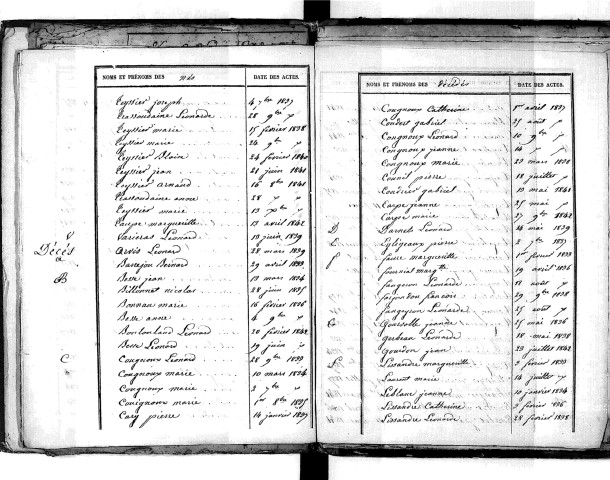 NOMS ET PRÉNOMS DES DATE DES ACTES.
Teyssier joseph 4 7bre 1837
Tessoudaine Léonarde 28 9bre
Teyssier marie 15 février 1838
Teyssier marie 24 9bre
Teyssier Blaise 24 février 1840
Teyssier jean 21 juin 1841
Teyssier arnaud 16 8bre 1841
Tessoudaine anne 28
Teyssier marie 13 Xbre
marguerite 13 avril 1842
V Varieras Léonard 13 juin 1839
Décés
a Arvis Léonard 28 mars 1839
Bernard 29 avril 1833
B Besse jean 13 mars 1834
Billonnet nicolas 28 juin 1835
Bonnau marie 16 février 1836
Besse anne 4 9bre
Léonard 20 février 1842
Besse Léonard 19 juin
C Cougnoux Léonard 28 9bre 1833
Cougnoux marie 10 mars 1834
Cougnoux marie 2 7bre
Cougnoux marie 1er 8bre 1835
Cary pierre 14 janvier 1837
NOMS ET PRÉNOMS DES Décédés DATE DES ACTES.
Cougnoux Catherine 1er avril 1837
Coudert gabriel 21 août
Cougnoux Léonard 10 9bre
Cougnoux jeanne 14
Cougnoux marie 23 mars 1838
pierre 18 juillet
gabriel 13 mai 1841
Carpe jeanne 25 mai
Carpe marie 27 9bre 1842
D Darnets Léonard 14 mai 1839
E Eyligeaux pierre 2 7bre 1837
F Faure marguerite 1er février 1833
margte 19 avril 1836
Léonarde 11 août
françois 29 9bre 1838
Léonarde 25 août
G jeanne 25 mai 1836
Léonard 18 mai 1838
Gourdon jean 23 juillet 1842
L Lissandre marguerite 2 février 1833
Laurent marie 14 juillet
Leblanc jeanne 10 janvier 1834
Lissandre Catherine 2 février 1836
Lissandre Léonarde 28 février 1838